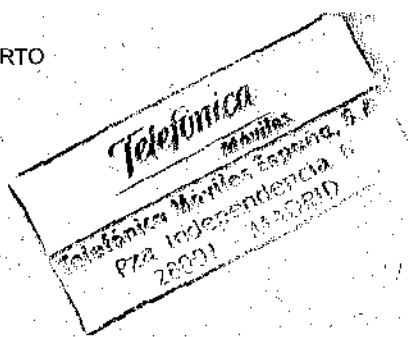 RTO
Telefónica
Móviles
Telefónica Móviles España, S.A.
Pza. Independencia, 6
28001 MADRID